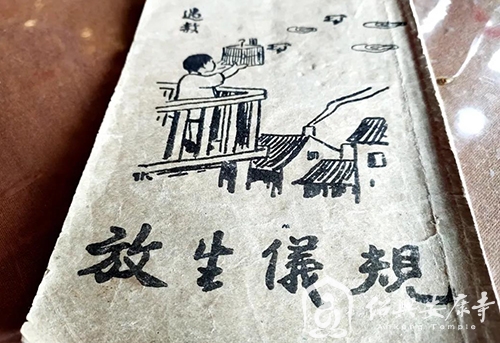 遇救
放生儀規
紹興安康寺
Ankang Temple